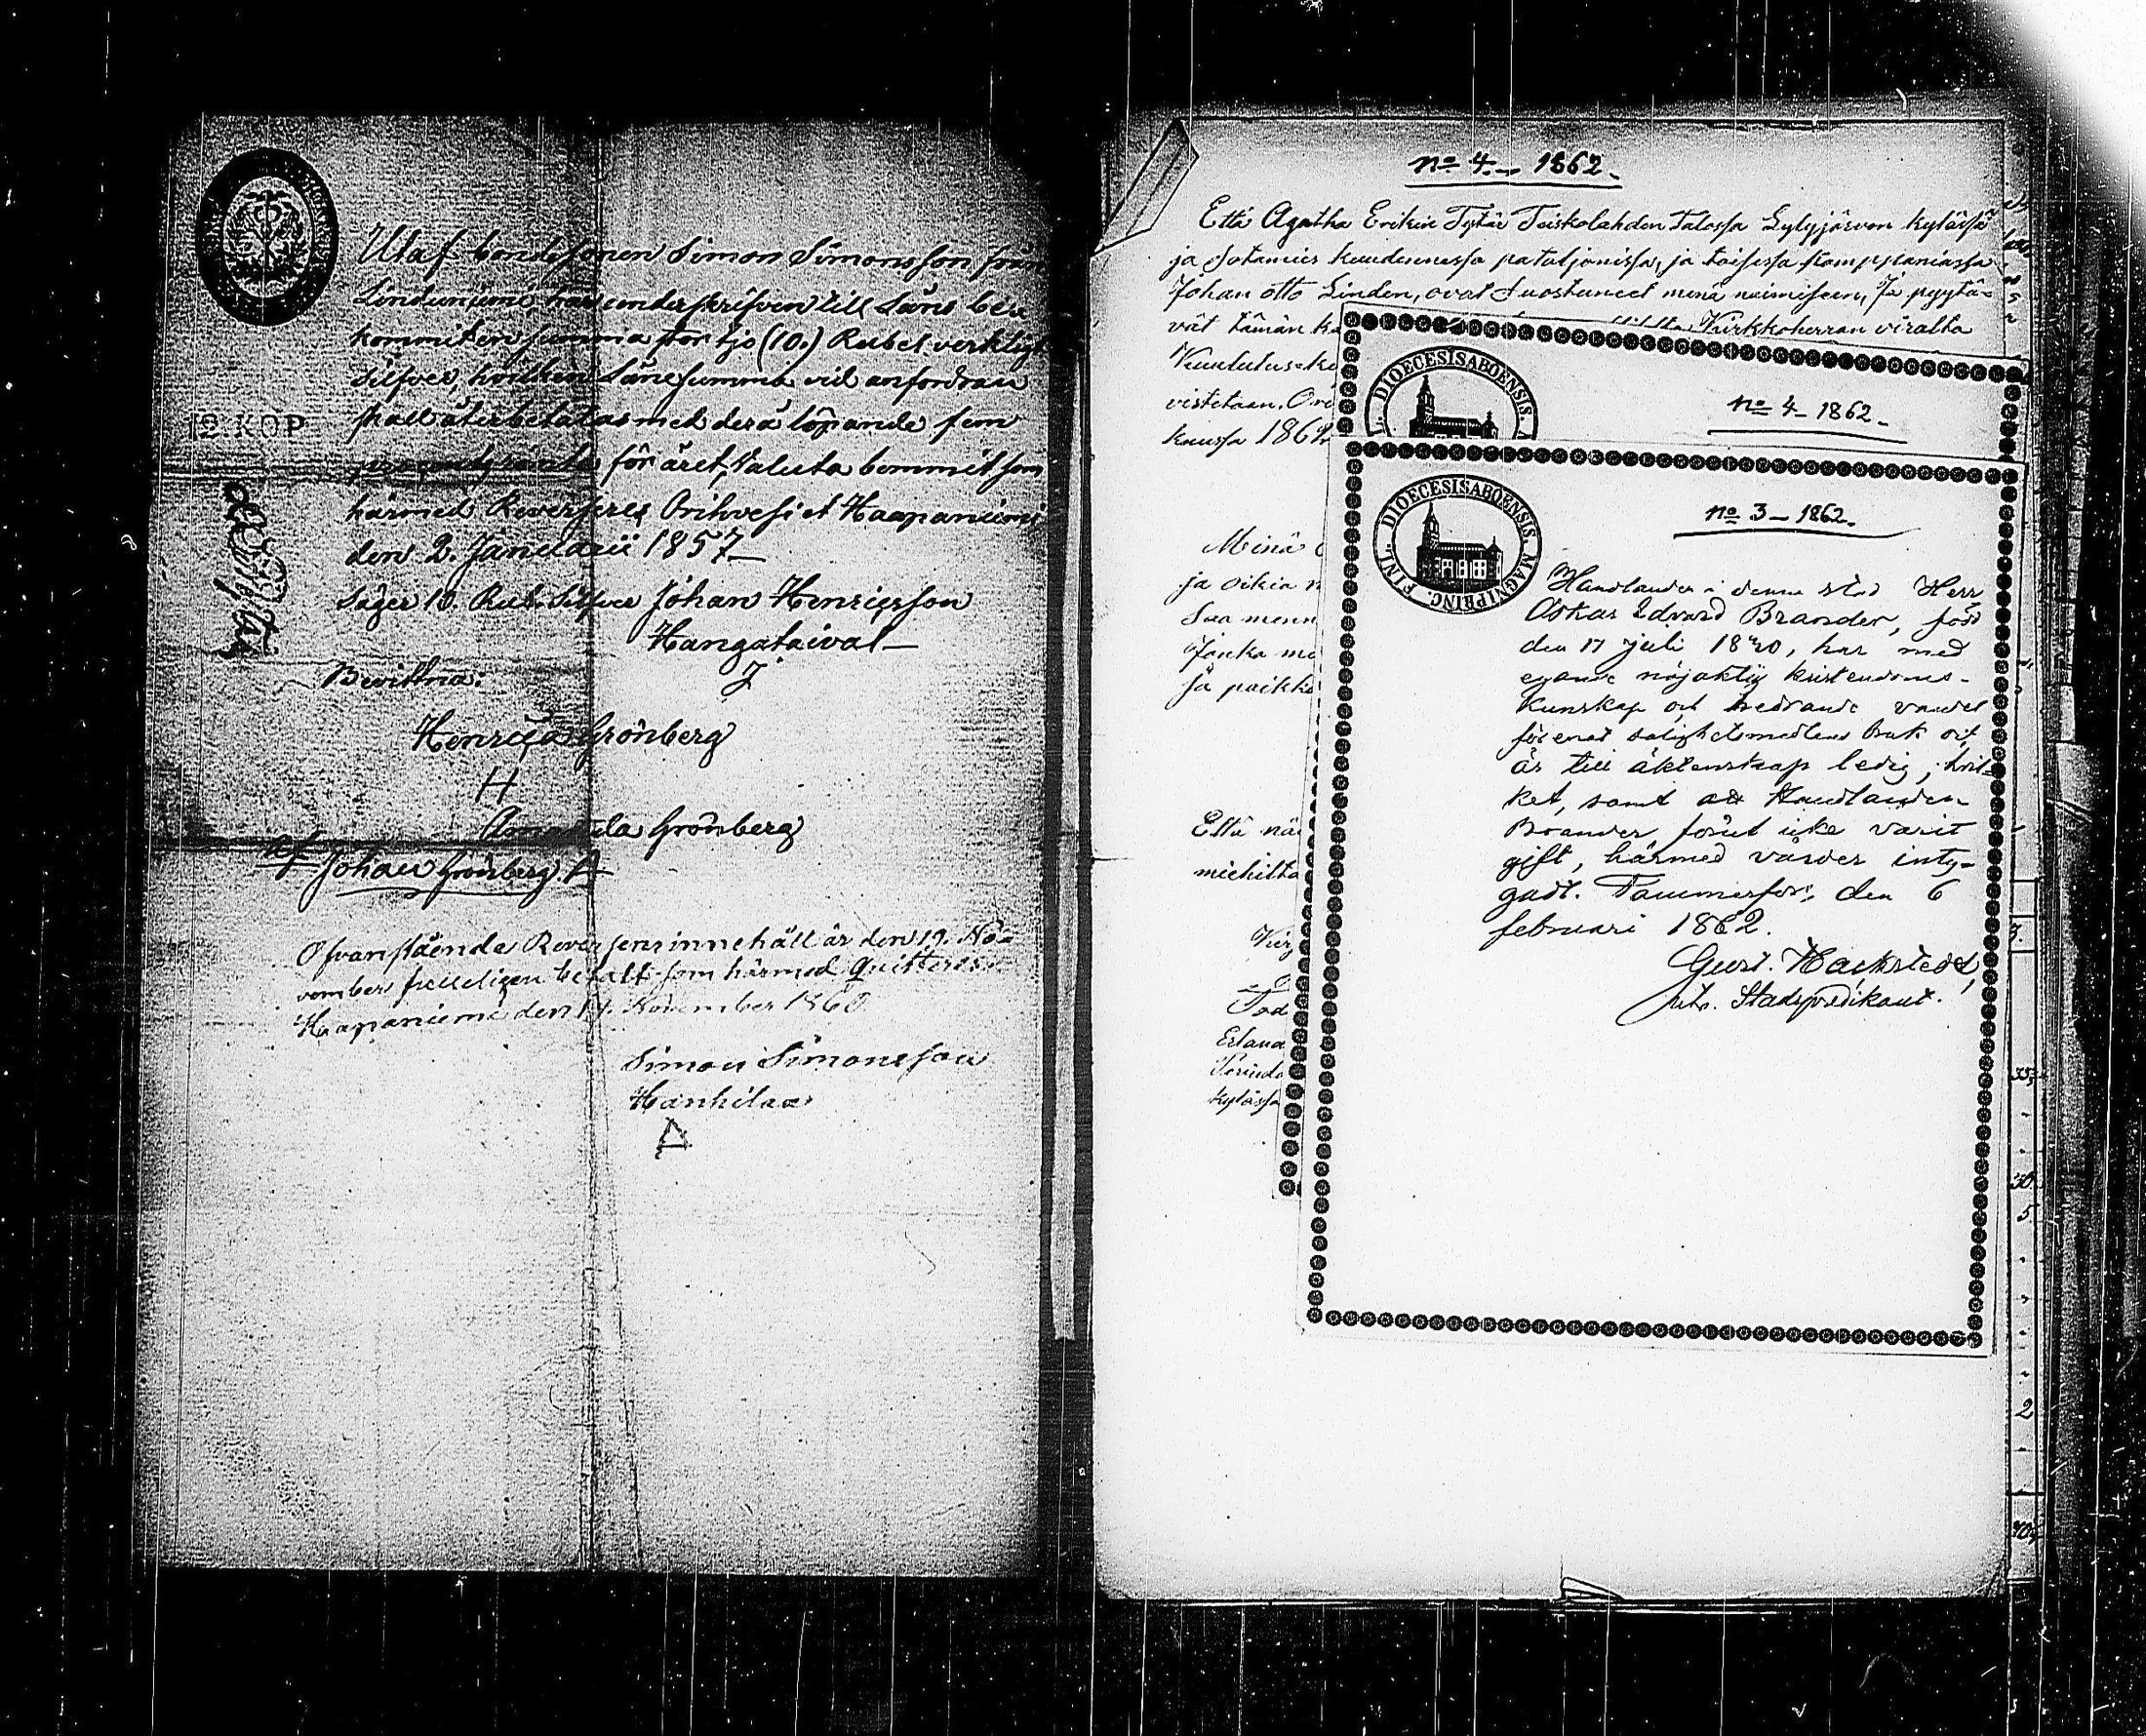 2. KOP
Utaf bondesonen Simon Simonsson från
Lönduniemi, har underskrifven till Låns be-
kommit en summa stor tjo (10.) Rubel verkligt
Silfver, hvilken Lånesumma vid anfordran
skall återbetalas med derå löpande fem
procents ränta för året, Valuta bekommit som
härmed Reverseres Orihvesi et Haapaniemi
den 2. Januarii 1857
Säger 10. Rub. Silfver Johan Henricsson
Hangataival
J
Bevittna:
Henrica Grönberg
H
Amanda Grönberg
af Johan Grönberg. A
Ofvanstående Reversens innehåll är den 19. No-
vember fulleligen betalt som härmed Quitteras
Haapaniemi den 19. November 1860
Simon Simonsson
Hanhilaa
No 4. - 1862.
Että Agatha Erikin Tytär Teiskolahden Talossa Lylyjärven kylässä
ja Sotamies kuudennessa pataljonissa, ja toisessa komppaniassa
Johan Otto Linden, ovat Suostuneet menä naimiseen, Ja pyytä-
vät tämän ka Kirkkoherran viralta
Kuulutuseke
vistetaan. Ori
kuussa 1862
Minä
ja oikia n
Saa menn
Jonka me
ja paikka
Että nä
miehiltä
Kir
Tod
Erland
Perind
kylässä
DIOECESIS ABOENSIS.
No 4 - 1862.
DIOECESIS ABOENSIS. MAGNI PRINC. FINL.
No 3 - 1862.
Handlanden i denna stad Herr
Oskar Edvard Brander, född
den 17 Juli 1840, har med
egande nöjaktig kristendoms-
kunskap och hedrande vandel
förenat salighetsmedlens bruk och
är till äktenskap ledig, hvil-
ket, samt att Handlanden
Brander förut icke varit
gift, härmed varder inty-
gadt. Tammerfors, den 6
februari 1862.
Gust. Hackstedt,
Stadspredikant.